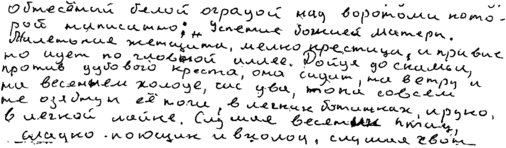 обнесённый белой оградой над воротами кото-
рой написанно: „Успение божией матери.
Маленькая женщина, мелко крестица, и привыч
но идет по главной аллее. Дойдя до скамьи,
против дубового креста, она сидит, на ветру и
на весеннем холоде, час, два, пока совсем
не озябнут её ноги, в легких ботинках, и рука,
в легкой лайке. Слушая весенних птиц,
сладко поющих и в холод, слушая звон